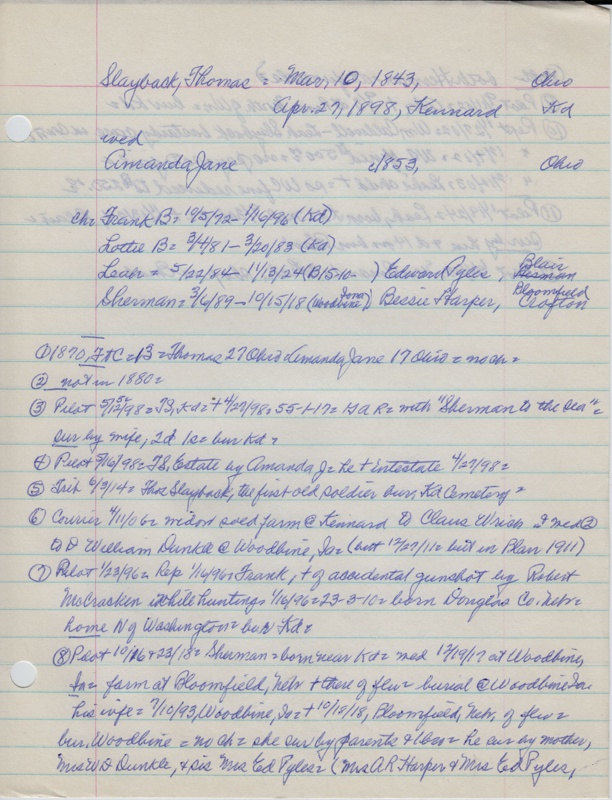 Slayback, Thomas = Mar, 10, 1843, Ohio
Apr. 27, 1898, Kennard Kd
wed
Amanda Jane c/1853, Ohio
chr Frank B = 10/5/72 - 1/16/96 (Kd)
Lottie B = 3/4/81 - 3/20/83 (Kd)
Leah = 5/22/84 - 11/13/24 (B15-10- ) Edward Pyles, Blair
Herman
Sherman = 3/6/89 - 10/15/18 (Woodbine, Iowa) Bessie Harper, Bloomfield
Crofton
① 1870, Ft C = 13 = Thomas 27 Ohio Amanda Jane 17 Ohio = no ch =
② not in 1880 =
③ Pilot 5/12/98 = TS, Kd = + 4/27/98 = 55-1-17 = GAR = with "Sherman to the Sea" =
sur by wife, 2d 1s = bur Kd =
④ Pilot 5/16/98 = TS, Estate by Amanda J = he + intestate 4/27/98 =
⑤ Trib 6/3/14 = Thos Slayback, the first old soldier bur, Kd Cemetery =
⑥ Courier 4/11/06 = widow sold farm @ Kennard to Claus Wrich & wed ②
to D William Dunkle @ Woodbine, Ia = (both 12/27/11 = visit in Blair 1911)
⑦ Pilot 1/23/96 = Rep 1/16/96 = Frank, + of accidental gunshot by Robert
McCracken while hunting = 1/16/96 = 23-3-10 = born Douglas Co. Nebr =
home N of Washington = bur Kd =
⑧ Pilot 10/16 & 23/18 = Sherman = born near Kd = wed 12/19/17 at Woodbine,
Ia = farm at Bloomfield, Nebr + there of flu = burial @ Woodbine Ia =
his wife = 7/10/93, Woodbine, Ia = + 10/15/18, Bloomfield, Nebr, of flu =
bur, Woodbine = no ch = she sur by parents & 1 bro = he sur by mother,
Mrs W D Dunkle, & sis Mrs Ed Pyles = (Mrs A R Harper & Mrs Ed Pyles,